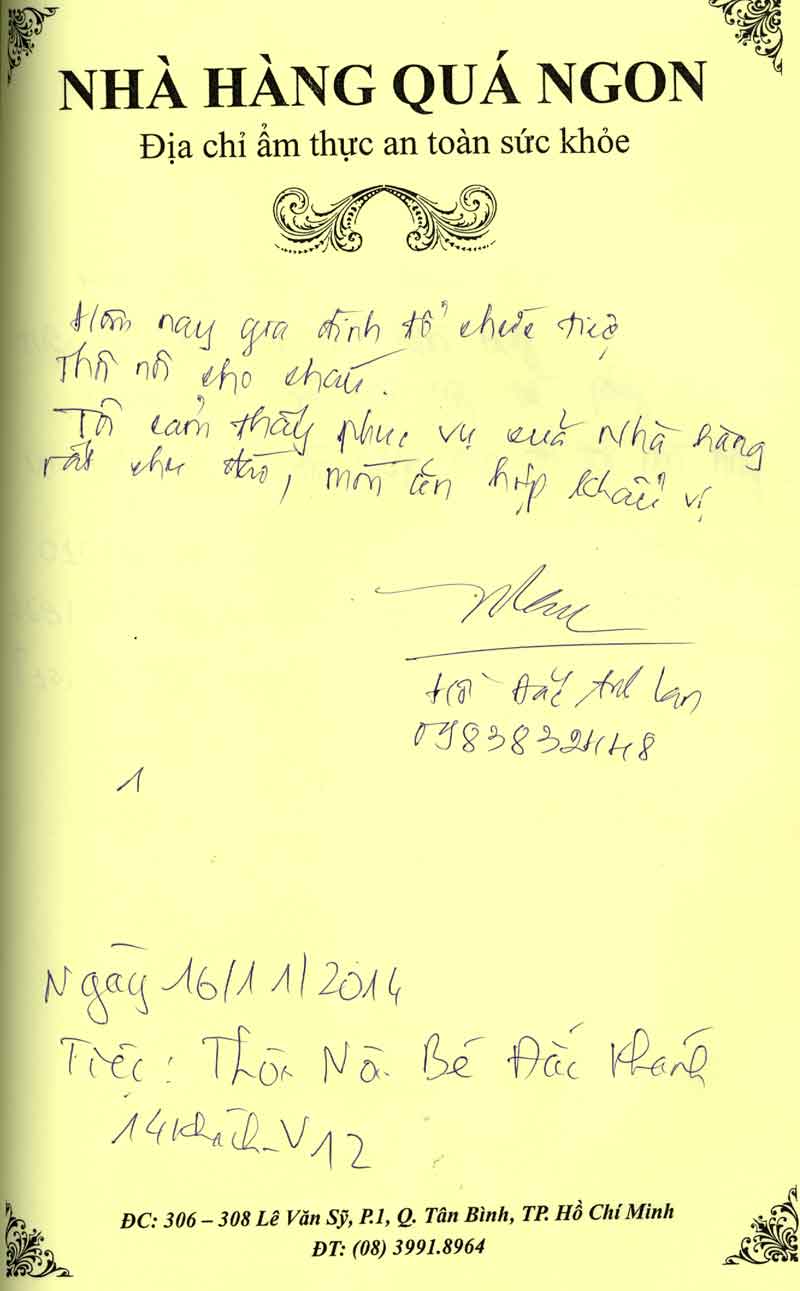 NHÀ HÀNG QUÁ NGON
Địa chỉ ẩm thực an toàn sức khỏe
Hôm nay gia đình tổ chức tiệc
Thôi nôi cho cháu.
Tôi cảm thấy phục vụ của Nhà hàng
rất chu đáo, món ăn hợp khẩu vị
Hồ Đắc Anh Lan
1
Ngày 16/11/2014
Tiệc: Thôi Nôi Bé Đắc Khánh
14 khách_V12
ĐC: 306 – 308 Lê Văn Sỹ, P.1, Q. Tân Bình, TP. Hồ Chí Minh
ĐT: (08) 3991.8964